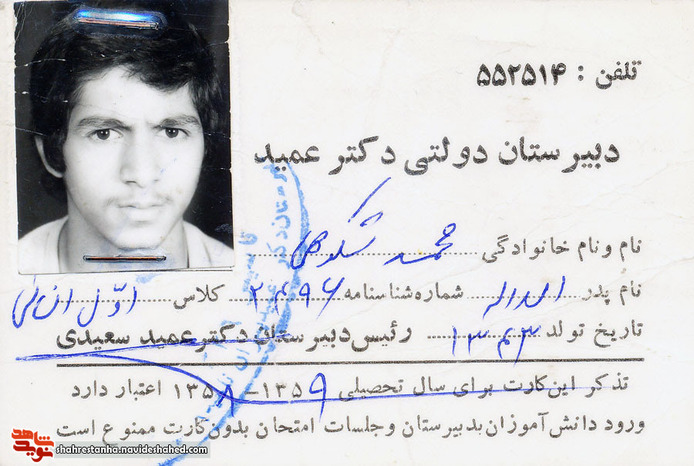 تلفن : ۵۵۲۵۱۴
دبیرستان دولتی دکتر عمید
نام و نام خانوادگی محمد شکوهی
نام پدر اسداله شماره شناسنامه ۲۴۹۶ کلاس اوّل انسانی
تاریخ تولد ۱۳۴۳ رئیس دبیرستان دکتر عمید سعیدی
تذکر این کارت برای سال تحصیلی ۱۳۵۹-۱۳۵۸ اعتبار دارد
ورود دانش آموزان بدبیرستان و جلسات امتحان بدون کارت ممنوع است
نوید شاهد
shahrestanha.navideshahed.com